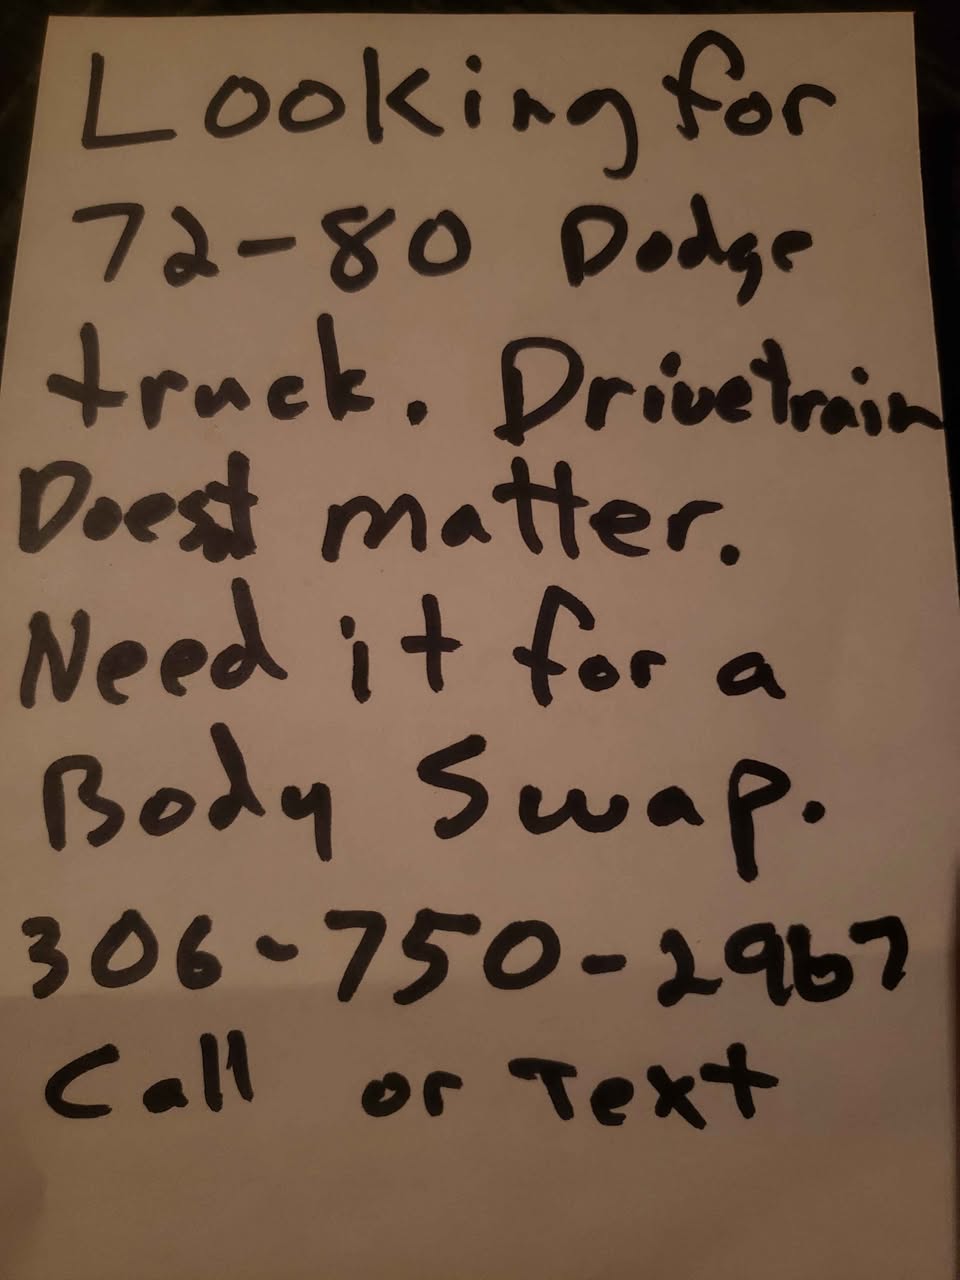 Looking for
72-80 Dodge
truck. Drivetrain
Doest matter.
Need it for a
Body Swap.
306-750-2967
Call or Text